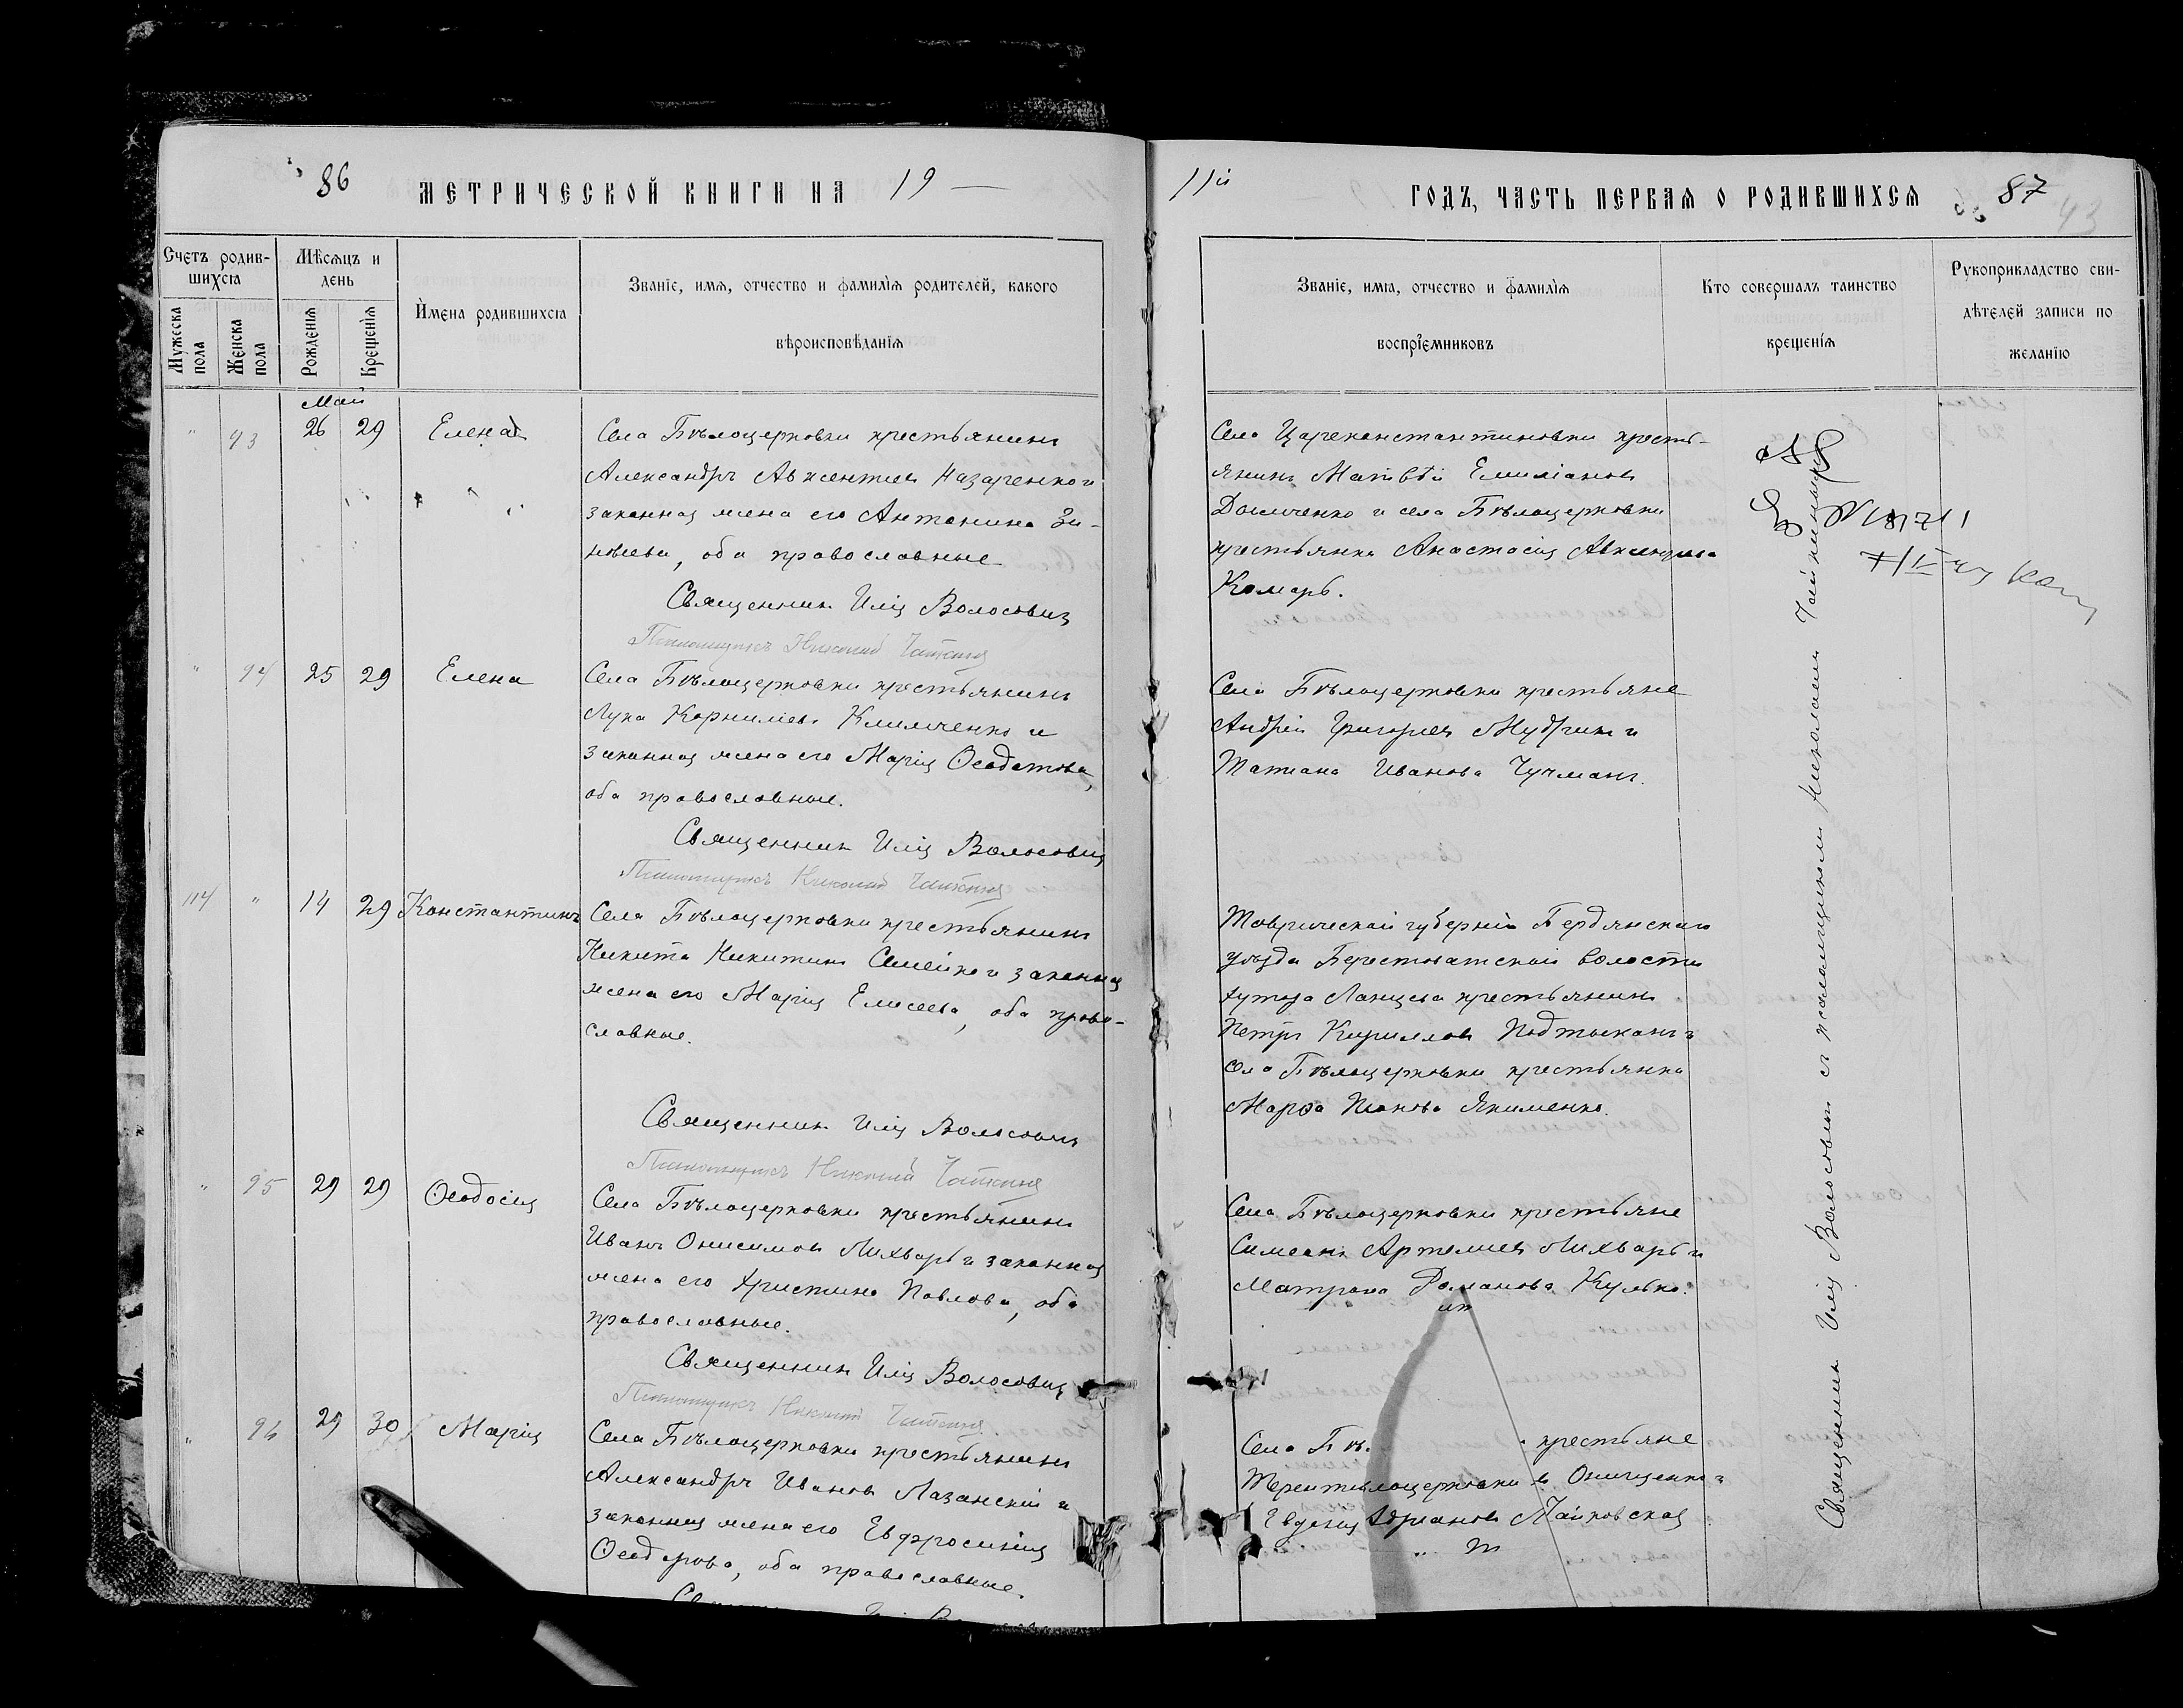 86 МЕТРИЧЕСКОЙ КНИГИ НА 19 —
11й ГОДЪ, ЧАСТЬ ПЕРВАЯ О РОДИВШИХСЯ 87
43
Счетъ родив-
шихся
Мужеска пола
Женска пола
Мѣсяцъ и
день
Рожденія
Крещенія
Имена родившихся
Званіе, имя, отчество и фамилія родителей, какого
вѣроисповѣданія
Званіе, имя, отчество и фамилія
воспріемниковъ
Кто совершалъ таинство
крещенія
Рукоприкладство сви-
дѣтелей записи по
желанію
Май
" 93 26 29 Елена
Села Бѣлоцерковки крестьянинъ
Александръ Авксентіевъ Назаренко и
законная жена его Антонина Зи-
новіева, оба православные
Священникъ Илія Волосовичъ
Псаломщикъ Николай
Села Цареконстантиновки кресть-
янинъ Матвѣй Емиліановъ
и села Бѣлоцерковки
крестьянка Анастасія Авксентіева
Комаръ.
" 94 25 29 Елена
Села Бѣлоцерковки крестьянинъ
Лука Корниліевъ Климченко и
законная жена его Марія Ѳеодотова,
оба православные.
Священникъ Илія Волосовичъ
Псаломщикъ Николай
Села Бѣлоцерковки крестьяне
Андрей Григорьевъ Мудрикъ и
Татіана Иванова Чучманъ.
114 " 14 29 Константинъ
Села Бѣлоцерковки крестьянинъ
Никита Никитинъ Семейко и законная
жена его Марія Елисеева, оба право-
славные.
Священникъ Илія Волосовичъ
Псаломщикъ Николай
Таврической губерніи Бердянскаго
уѣзда Берестоватской волости
хутора крестьянинъ
Петръ Кирилловъ Подтыканъ и
села Бѣлоцерковки крестьянка
Марѳа Якименко.
" 95 29 29 Ѳеодосія
Села Бѣлоцерковки крестьянинъ
Иванъ Онисимовъ Лихваръ и законная
жена его Христина Павлова, оба
православные.
Священникъ Илія Волосовичъ
Псаломщикъ Николай
Села Бѣлоцерковки крестьяне
Симеонъ Артемиевъ Лихваръ и
Матрона Романова Кулько.
" 96 29 30 Марія
Села Бѣлоцерковки крестьянинъ
Александръ Ивановъ Лазанскій и
законная жена его Евфросинія
Ѳеодорова, оба православные.
Села Бѣ крестьяне
лоцерковки Онищенко и
Евдокія Маньковская
Священникъ Илія Волосовичъ съ псаломщикомъ Николаемъ